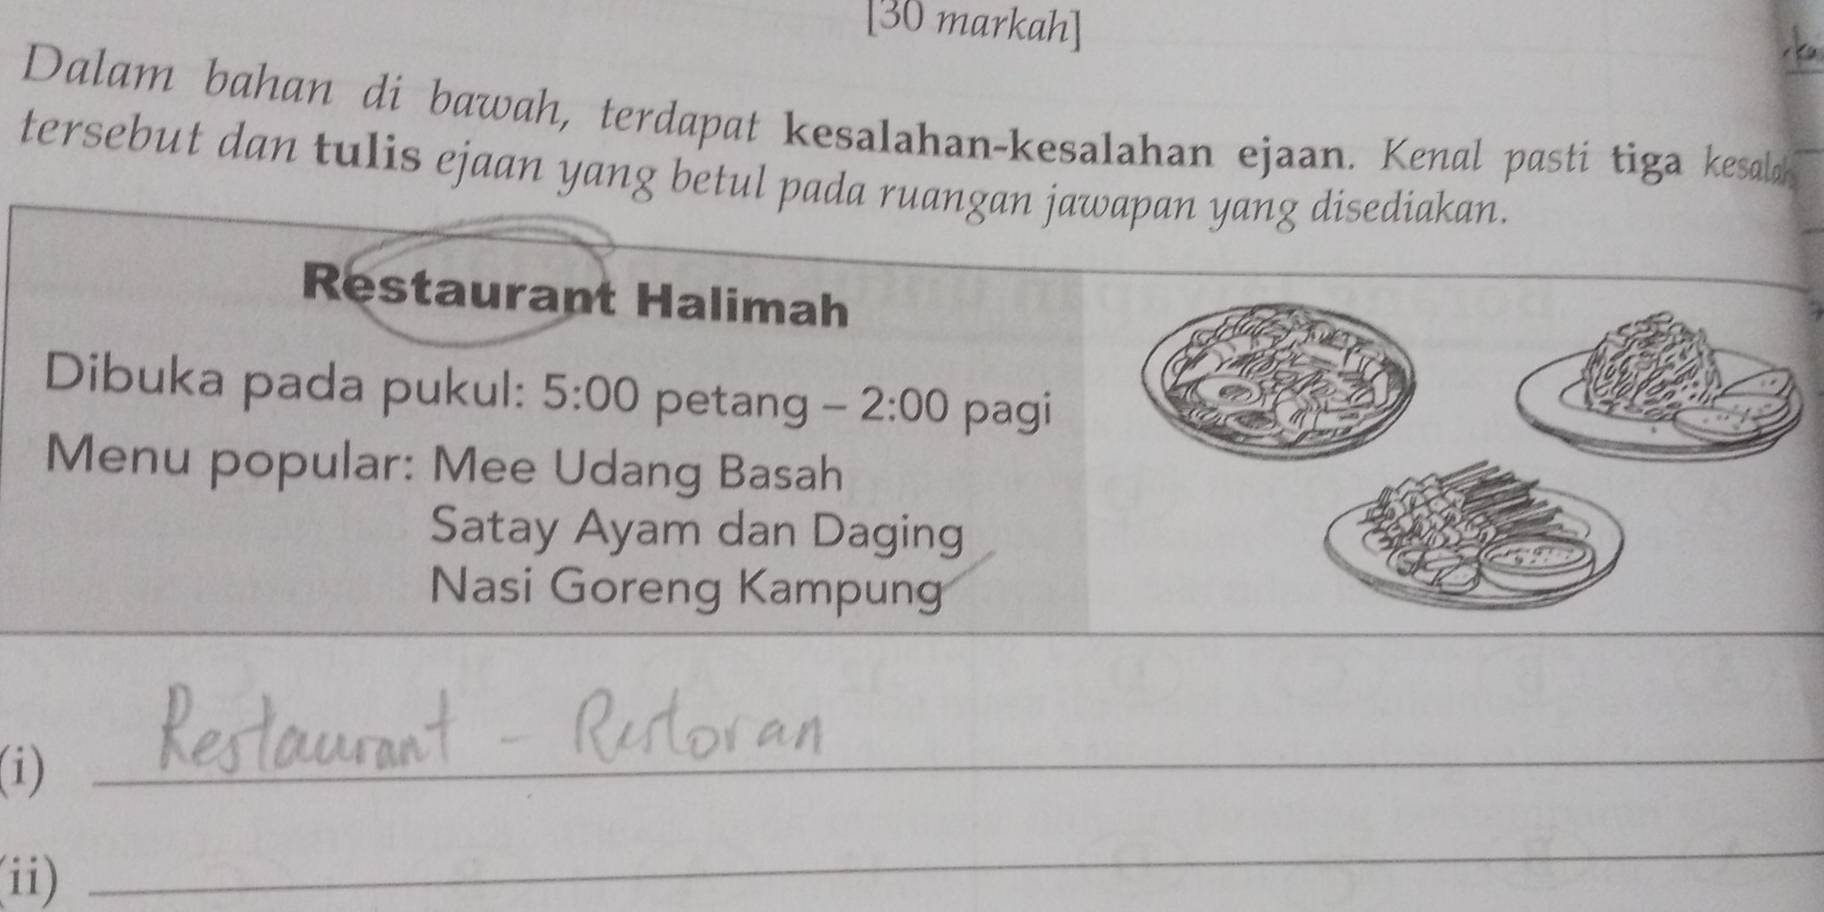 [30 markah]
Dalam bahan di bawah, terdapat kesalahan-kesalahan ejaan. Kenal pasti tiga
tersebut dan tulis ejaan yang betul pada ruangan jawapan yang disediakan.
Restaurant Halimah
Dibuka pada pukul: 5:00 petang – 2:00 pagi
Menu popular: Mee Udang Basah
Satay Ayam dan Daging
Nasi Goreng Kampung
(i) Restaurant - Restoran
(ii)